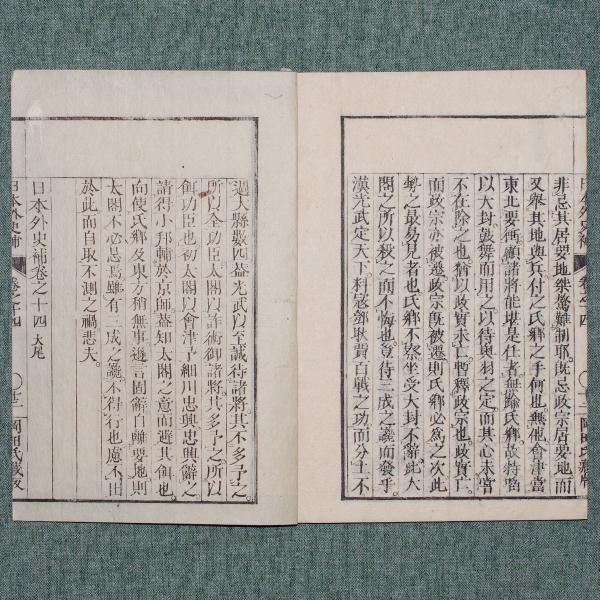 非忌其居要地桀驁難制耶既忌政宗居要地而
又舉其地與兵付之氏鄉之手何也無他會津當
東北要衝顧諸將能堪是任者無踰氏鄉故特啗
以大封鼓舞而用之以待奧羽之定而其心未嘗
不在除之也猶以政實未亡暫釋政宗也政實亡
而政宗亦被遷政宗既被遷則氏鄉必爲之次此
勢之最易見者也氏鄉不察坐受大封不辭此太
閤之所以殺之而不悔也豈待三成之讒而發乎
漢光武定天下料寇鄧耿賈百戰之功而分土不
過大縣數四蓋光武以至誠待諸將其不多予之
所以全功臣也太閤以詐術御諸將其多予之所以
餌功臣也初太閤以會津予細川忠興忠興辭之
請得小邦輔於京師蓋知太閤之意而避其餌也
向使氏鄉及東方稍無事遜言固辭自離要地則
太閤不必忌焉雖有三成之讒不得行也慮不出
於此而自取不測之禍悲夫
日本外史補卷之十四大尾
日本外史補
卷之十四
岡田氏藏版
日本外史補
卷之十四
岡田氏藏版